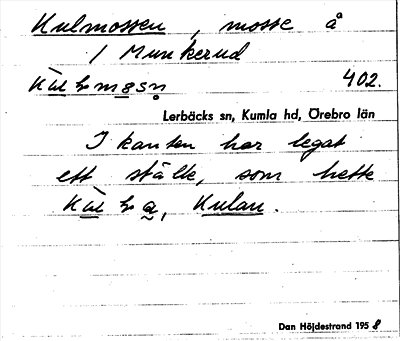 Kulmossen, mosse å
1 Munkerud
402.
Lerbäcks sn, Kumla hd, Örebro län
I kanten har legat
ett ställe, som hette
Kulan.
Dan Höjdestrand 1958